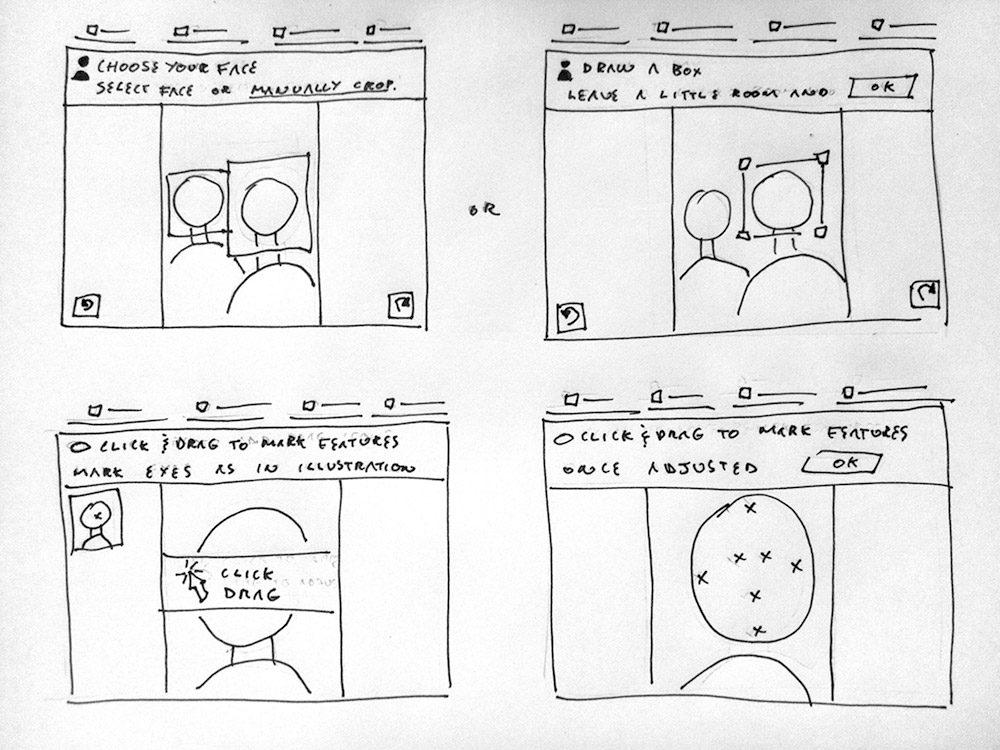 CHOOSE YOUR FACE
SELECT FACE OR MANUALLY CROP.
OR
DRAW A BOX
LEAVE A LITTLE ROOM AND OK
CLICK & DRAG TO MARK FEATURES
MARK EYES AS IN ILLUSTRATION
CLICK
DRAG
CLICK & DRAG TO MARK FEATURES
ONCE ADJUSTED OK